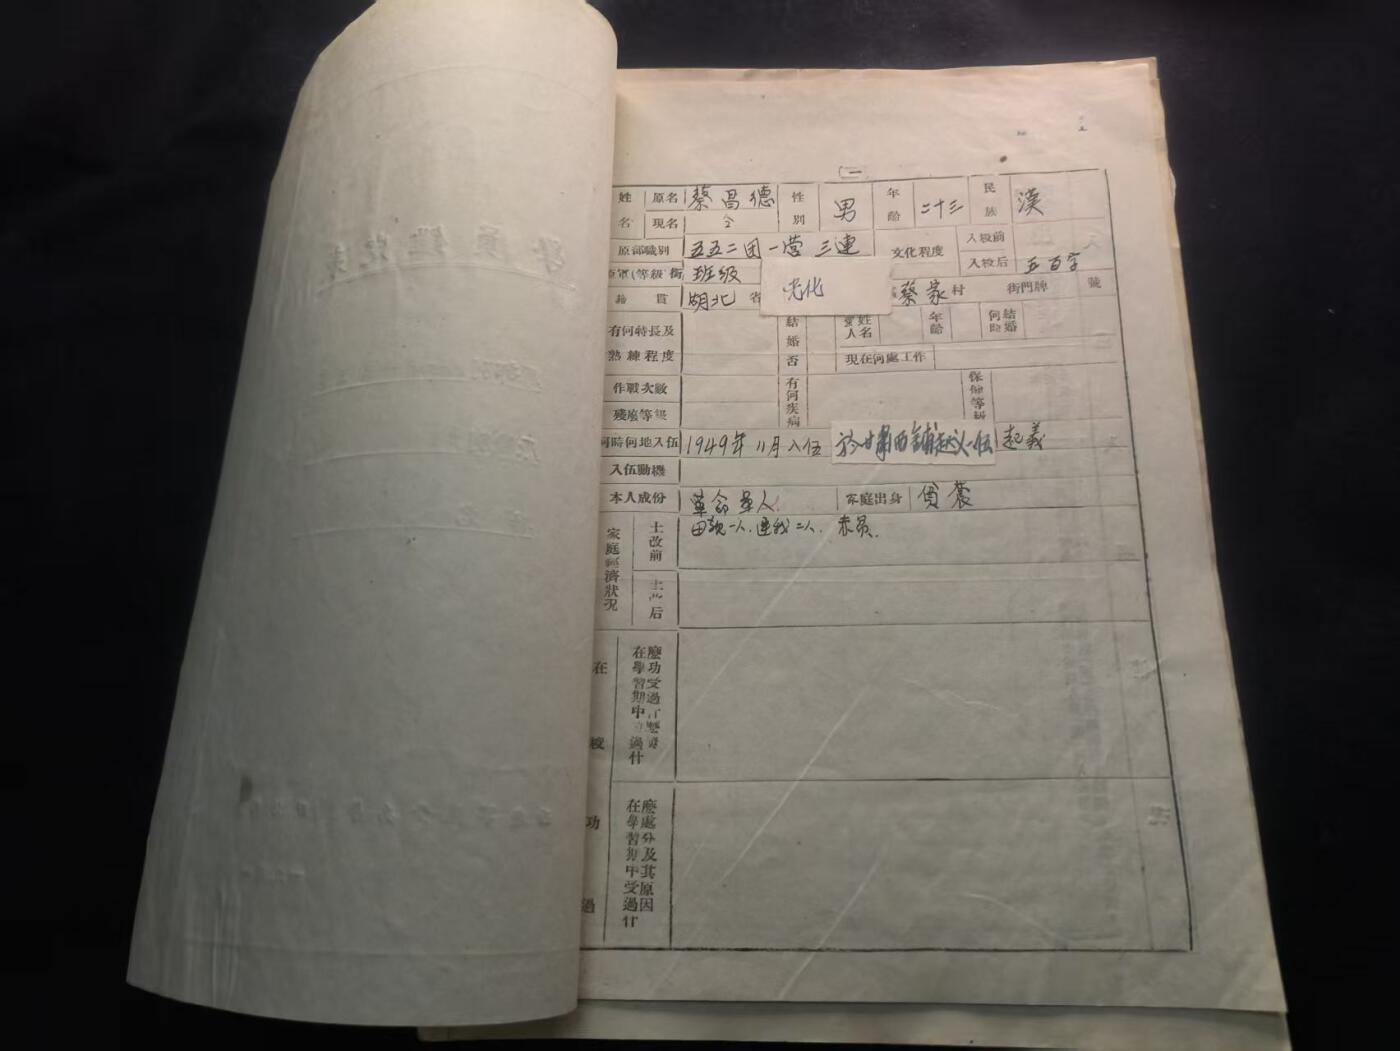 (一)
姓名 原名 蔡昌德 性別 男 年齡 二十三 民族 漢
現名 仝
原部職別 五五二团一营三連 文化程度 入校前
入校后 五百字
原軍(等級)銜 班級
籍貫 胡北省 光化 蔡家村 街門牌 號
有何特長及熟練程度 結婚否 愛人姓名 年齡 何時結婚
現在何處工作
作戰次數 有何疾病 保健等級
殘廢等級
何時何地入伍 1949年11月入伍 於甘肅西 起義
入伍動機
本人成份 革命軍人 家庭出身 貧農
家庭經濟狀況 土改前 母親一人.連我二人.
土改后
在校功過
在學習期中
在學習期中受過什麼處分及其原因